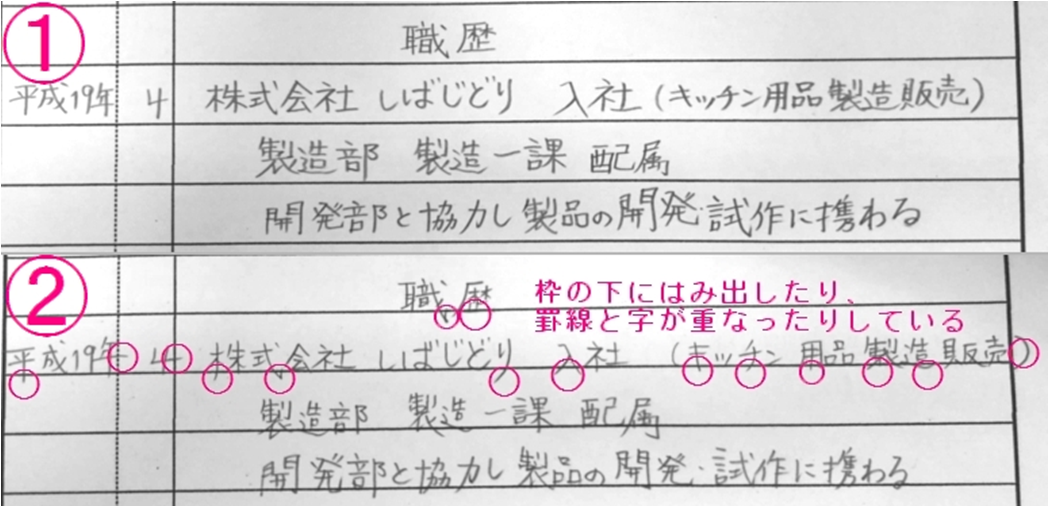 1
職歴
平成19年 4 株式会社 しばじどり 入社(キッチン用品製造販売)
製造部 製造一課 配属
開発部と協力し製品の開発・試作に携わる
2
職歴
枠の下にはみ出したり、
罫線と字が重なったりしている
平成19年 4 株式会社 しばじどり 入社 (キッチン用品製造販売)
製造部 製造一課 配属
開発部と協力し製品の開発・試作に携わる